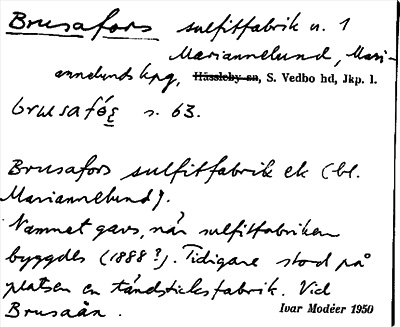 Brusafors sulfitfabrik n. 1
Mariannelund, Mari-
annelunds kpg, Hässleby sn, S. Vedbo hd, Jkp. l.
brusafó̱s̱ s. 63.
Brusafors sulfitfabrik ek (bl.
Mariannelund).
Namnet gavs, när sulfitfabriken
byggdes (1888?). Tidigare stod på
platsen en tändsticksfabrik. Vid
Brusaån.
Ivar Modéer 1950